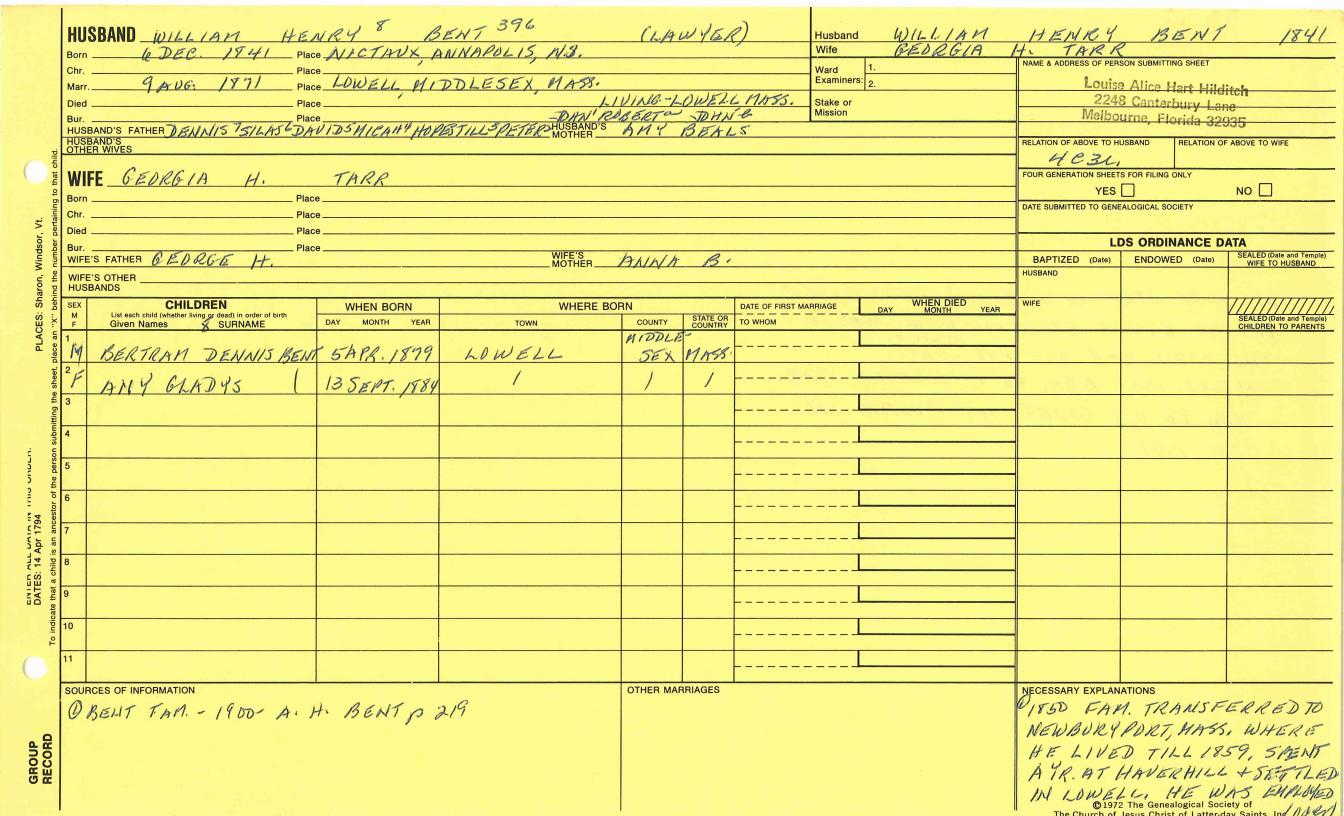 HUSBAND WILLIAM HENRY 8 BENT 396 (LAWYER)
Born 6 DEC. 1841 Place NICTAUX, ANNAPOLIS, N.S.
Chr. Place
Marr. 9 AUG. 1871 Place LOWELL, MIDDLESEX, MASS.
Died Place LIVING-LOWELL MASS.
Bur. Place
HUSBAND'S FATHER DENNIS 7 SILAS 6 DAVID 5 MICAH 4 HOPESTILL 3 PETER JOHN HUSBAND'S MOTHER AMY BEALS
HUSBAND'S OTHER WIVES
WIFE GEORGIA H. TARR
Born Place
Chr. Place
Died Place
Bur. Place
WIFE'S FATHER GEORGE H. WIFE'S MOTHER ANNA B.
WIFE'S OTHER HUSBANDS
Husband WILLIAM HENRY BENT 1841
Wife GEORGIA H. TARR
Ward Examiners: 1.
2.
Stake or Mission
NAME & ADDRESS OF PERSON SUBMITTING SHEET
Louise Alice Hart Hilditch
2248 Canterbury Lane
Melbourne, Florida 32935
RELATION OF ABOVE TO HUSBAND RELATION OF ABOVE TO WIFE
4C3R
FOUR GENERATION SHEETS FOR FILING ONLY
YES NO
DATE SUBMITTED TO GENEALOGICAL SOCIETY
LDS ORDINANCE DATA
BAPTIZED (Date) ENDOWED (Date) SEALED (Date and Temple) WIFE TO HUSBAND
HUSBAND
WIFE
SEALED (Date and Temple) CHILDREN TO PARENTS
SEX M F CHILDREN WHEN BORN WHERE BORN DATE OF FIRST MARRIAGE WHEN DIED
List each child (whether living or dead) in order of birth
Given Names SURNAME DAY MONTH YEAR TOWN COUNTY STATE OR COUNTRY TO WHOM DAY MONTH YEAR
1 M BERTRAM DENNIS BENT 5 APR. 1879 LOWELL MIDDLESEX MASS.
2 F AMY GLADYS 13 SEPT. 1884
3
4
5
6
7
8
9
10
11
SOURCES OF INFORMATION
① BENT FAM. - 1900 - A. H. BENT p 219
OTHER MARRIAGES
NECESSARY EXPLANATIONS
① 1850 FAM. TRANSFERRED TO
NEWBURYPORT, MASS. WHERE
HE LIVED TILL 1859, SPENT
A YR. AT HAVERHILL & SETTLED
IN LOWELL. HE WAS EMPLOYED
©1972 The Genealogical Society of
The Church of Jesus Christ of Latter-day Saints, Inc
PLACES: Sharon, Windsor, Vt.
ENTER ALL DATA IN THIS ORDER:
DATES: 14 Apr 1794
To indicate that a child is an ancestor of the person submitting the sheet, place an "X" behind the number pertaining to that child.
GROUP RECORD